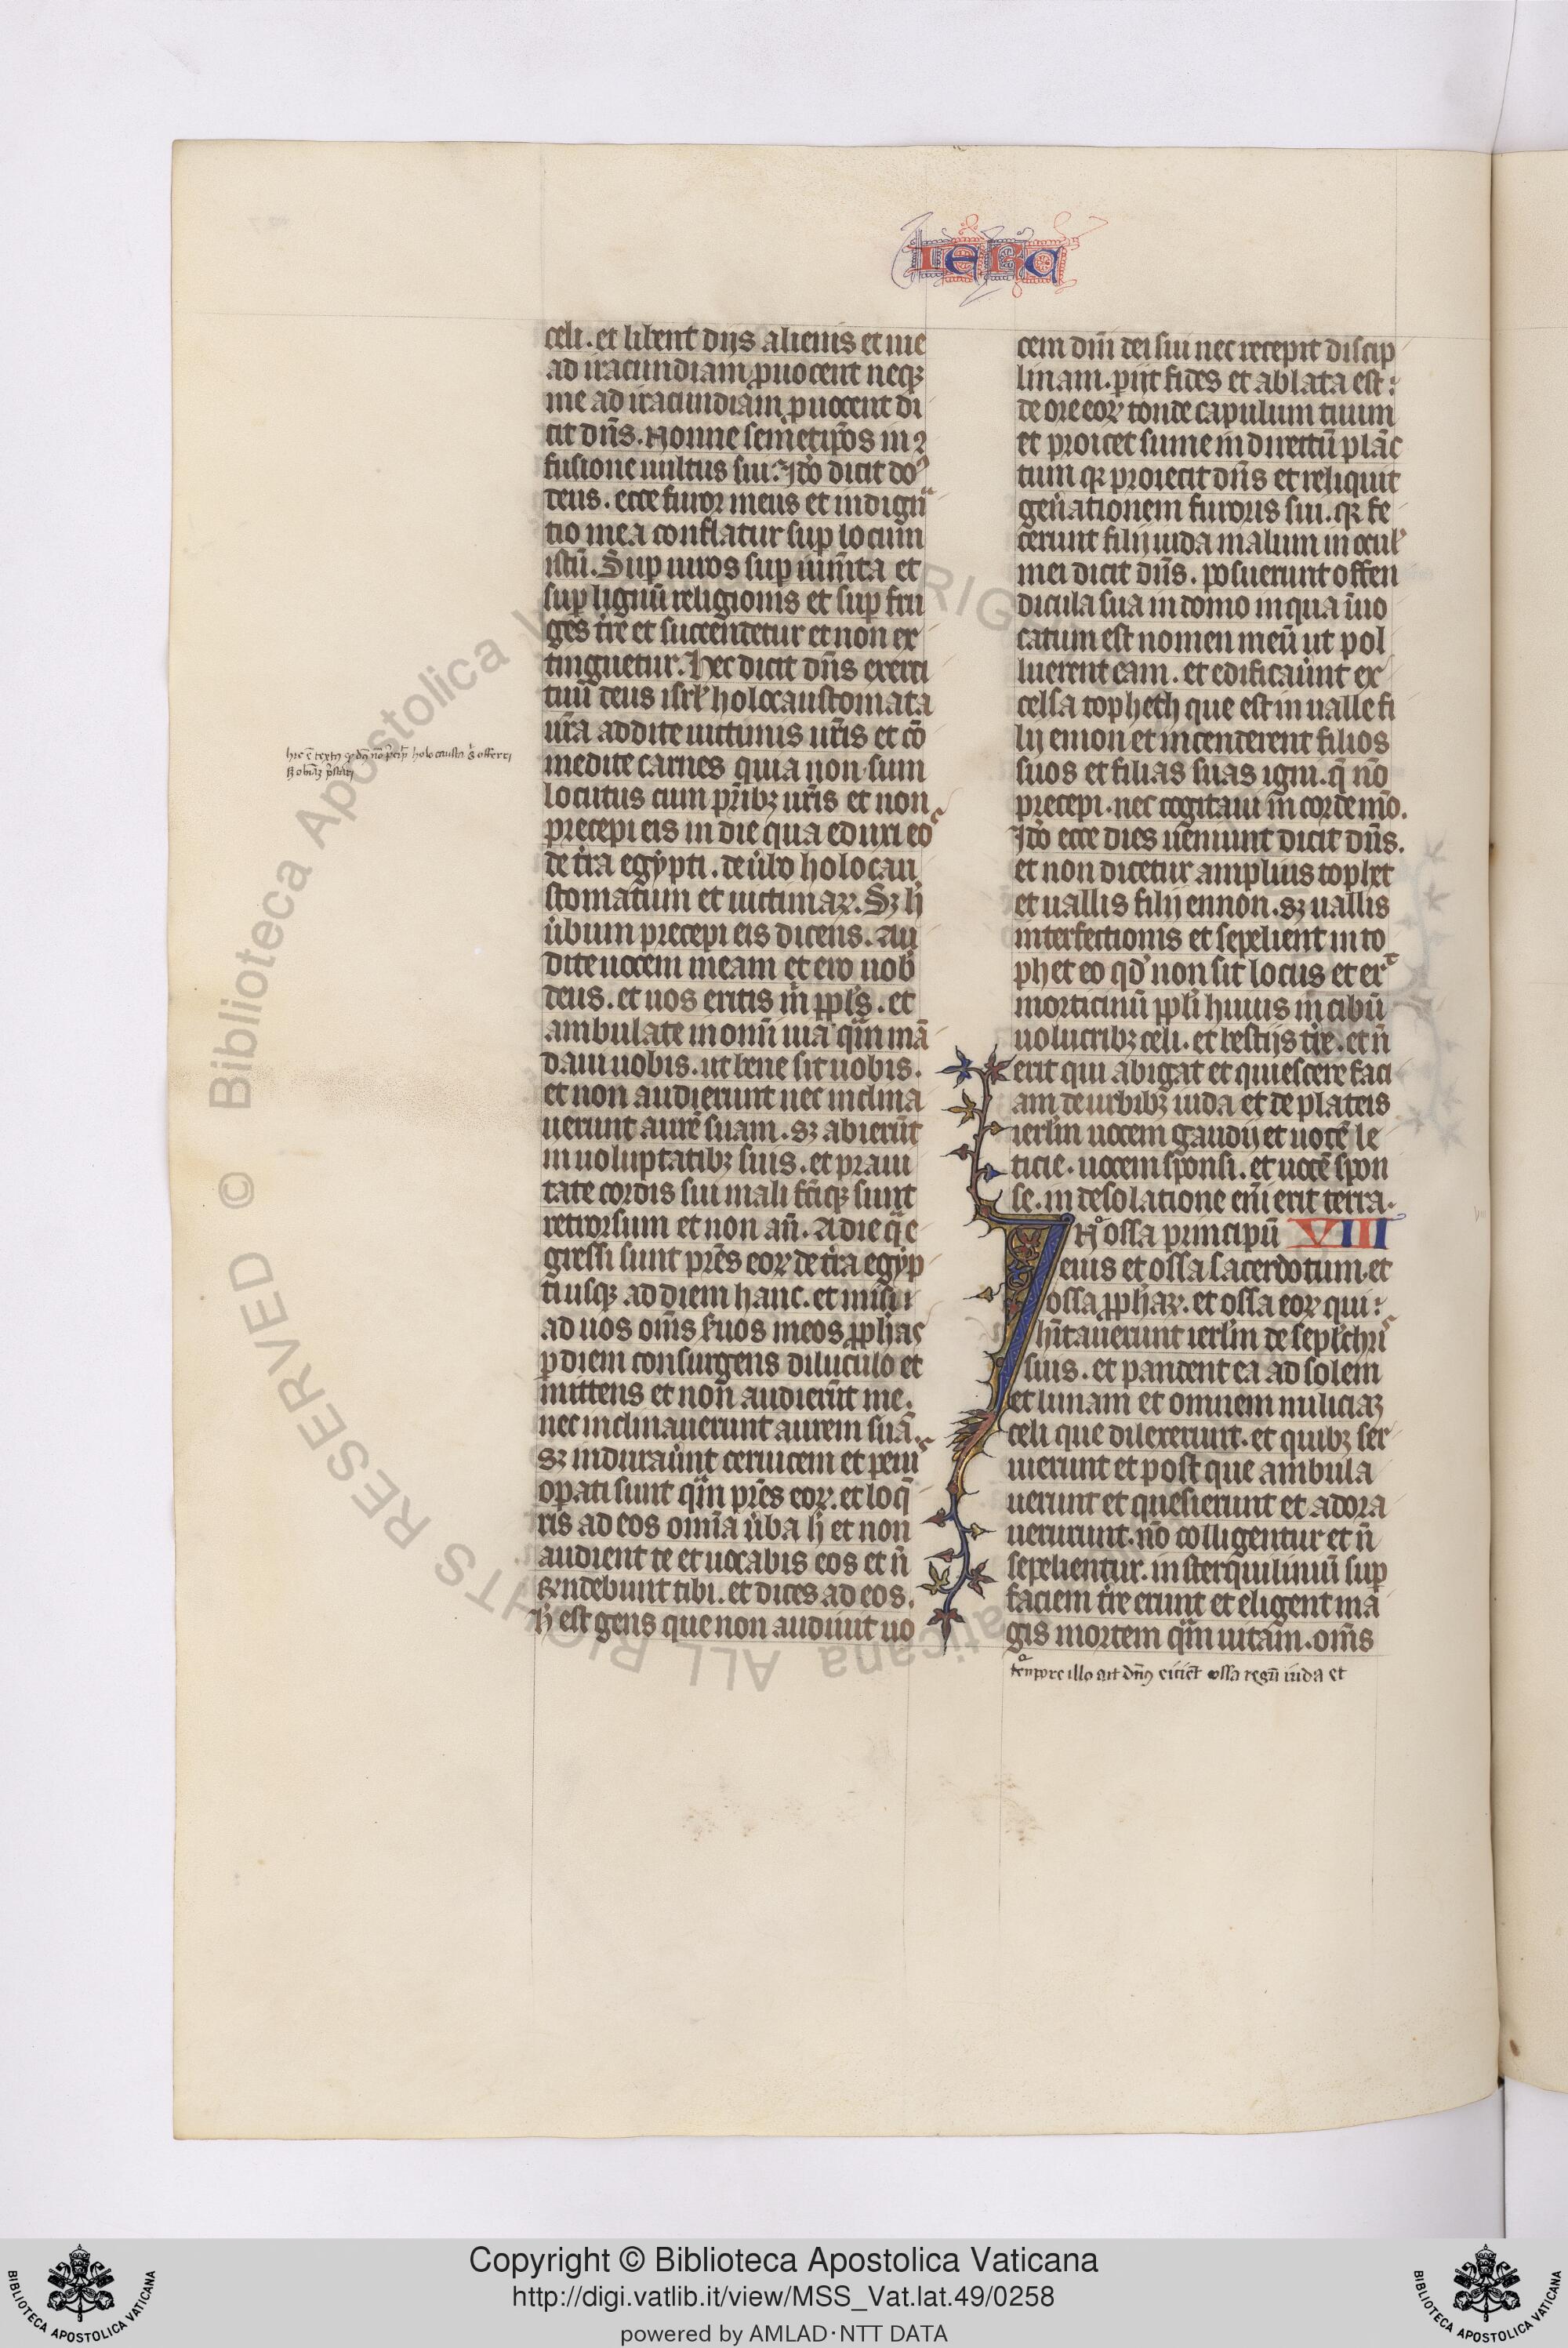 IERE
celi. et libent dijs alienis et me
ad iracundiam ꝓuocent neqꝫ
me ad iracundiam ꝓuocent di
cit dn̄s. Nonne semetip̄os in ↄ
fusione uultus sui. Jdo dicit do
deus. ecce furor meus et indigna
tio mea conflatur suꝑ locum
istū. Suꝑ uiros suꝑ iumn̄ta et
suꝑ lignū religionis et suꝑ fru
ges tr̄e et succendetur et non ex
tinguetur. Hec dicit dn̄s exerci
tuū deus isrl̄ holocaustomata
ur̄a addite uictimis ur̄is et cō
medite carnes quia non sum
locutus cum pr̄ibꝫ ur̄is et non
precepi eis in die qua eduxi eos
de t̄ra egypti. de ūbo holocau
stomatum et uictimaꝝ. Sꝫ h̄
ūbum precepi eis dicens. Au
dite uocem meam et ero uob̄
deus. et uos eritis m̄ ppl̄s. et
ambulate in omni uia qm̄ mā
daui uobis. ut bene sit uobis.
et non audierunt nec inclina
uerunt aurē suam. sꝫ abierūt
in uoluptatibꝫ suis. et praui
tate cordis sui mali fc̄iqꝫ sunt
retrorsum et non an̄. A die q̄ e
gressi sunt pr̄es eoꝝ de t̄ra egyp
ti usqꝫ ad diem hanc. et misi
ad uos om̄s s̄uos meos ꝓph̄as
ꝑ diem consurgens diluculo et
mittens et non audierūt me.
nec inclinauerunt aurem suā.
sꝫ indurau̅nt ceruicem et peius
opati sunt qm̄ pr̄es eoꝝ. et loq̄
ris ad eos omīa ūba h̄ et non
audient te et uocabis eos et n̄
rn̄debunt tibi. et dices ad eos.
h̄ est gens que non audiuit uo
hic
cem dn̄i dei sui nec recepit discip
linam. ꝑiit fides et ablata est:
de ore eoꝝ tonde capulum tuum
et proicet sume in directū plāc
tum qꝛ proiecit dn̄s et reliquit
geūationem furoris sui. qꝛ fe
cerunt filij iuda malum in ocul̓
meis dicit dn̄s. posuerunt offen
dicula sua in domo in qua īuo
catum est nomen meū ut pol
luerent eam. et edificaūnt ex
celsa topheth que est in ualle fi
lij ennon et incenderent filios
suos et filias suas igni. q̄ nō
precepi. nec cogitaui in corde m̄o.
Jdo ecce dies uenient dicit dn̄s.
et non dicetur amplius tophet
et uallis filij ennon. sꝫ uallis
interfectionis et sepelient in to
phet eo qd̓ non sit locus et erit
morticinū ppl̄i huius in cibū
uolucribꝫ celi. et bestijs tr̄e. et n̄
erit qui abigat et quiescere faci
am de urbibꝫ iuda et de plateis
ierl̄m uocem gaudij et uocē le
ticie. uocem sponsi. et uocē spon
se. in desolatione em̄ erit terra.
JN ossa principū VIII
eius et ossa sacerdotum. et
ossa ꝓph̄aꝝ. et ossa eoꝝ qui:
hītauerunt ierl̄m de sepl̄chris
suis. et pandent ea ad solem
et lunam et omnem miliciaꝫ
celi que dilexerunt. et quibꝫ ser
uierunt et post que ambula
uerunt et quesierunt et adora
uerurunt. nō colligentur et n̄
sepelientur. in sterquiliniū suꝑ
faciem tr̄e erunt et eligent ma
gis mortem qm̄ uitam. om̄s
tempore illo ait dn̄s eiciet ossa regū iuda et
© Biblioteca Apostolica Vaticana ALL RIGHTS RESERVED
Copyright © Biblioteca Apostolica Vaticana
http://digi.vatlib.it/view/MSS_Vat.lat.49/0258
powered by AMLAD·NTT DATA
BIBLIOTECA APOSTOLICA VATICANA
BIBLIOTECA APOSTOLICA VATICANA